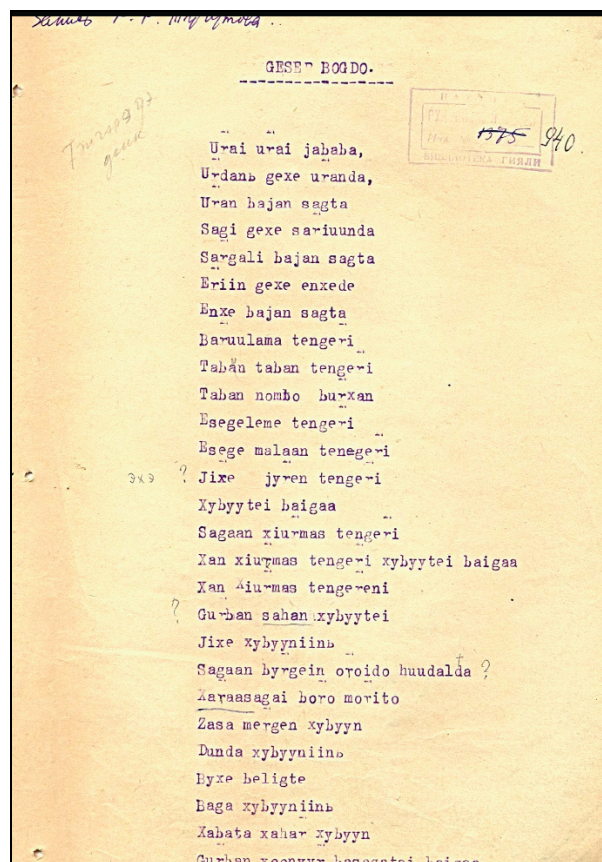 GESER BOGDO.
1375 940.
БИБЛИОТЕКА ГИЯЛИ
Urai urai jababa,
Urdanь gexe uranda,
Uran bajan sagta
Sagi gexe sariuunda
Sargali bajan sagta
Eriin gexe enxede
Enxe bajan sagta
Baruulama tengeri
Taban taban tengeri
Taban nombo burxan
Esegeleme tengeri
Esege malaan tenegeri
эхэ ? Jixe jyren tengeri
Xybyytei baigaa
Sagaan xiurmas tengeri
Xan xiurmas tengeri xybyytei baigaa
Xan Xiurmas tengereni
? Gurban sahan xybyytei
Jixe xybyyniinь
Sagaan byrgein oroido huudalda ?
Xaraasagai boro morito
Zasa mergen xybyyn
Dunda xybyyniinь
Byxe beligte
Baga xybyyniinь
Xabata xahar xybyyn
Gurban